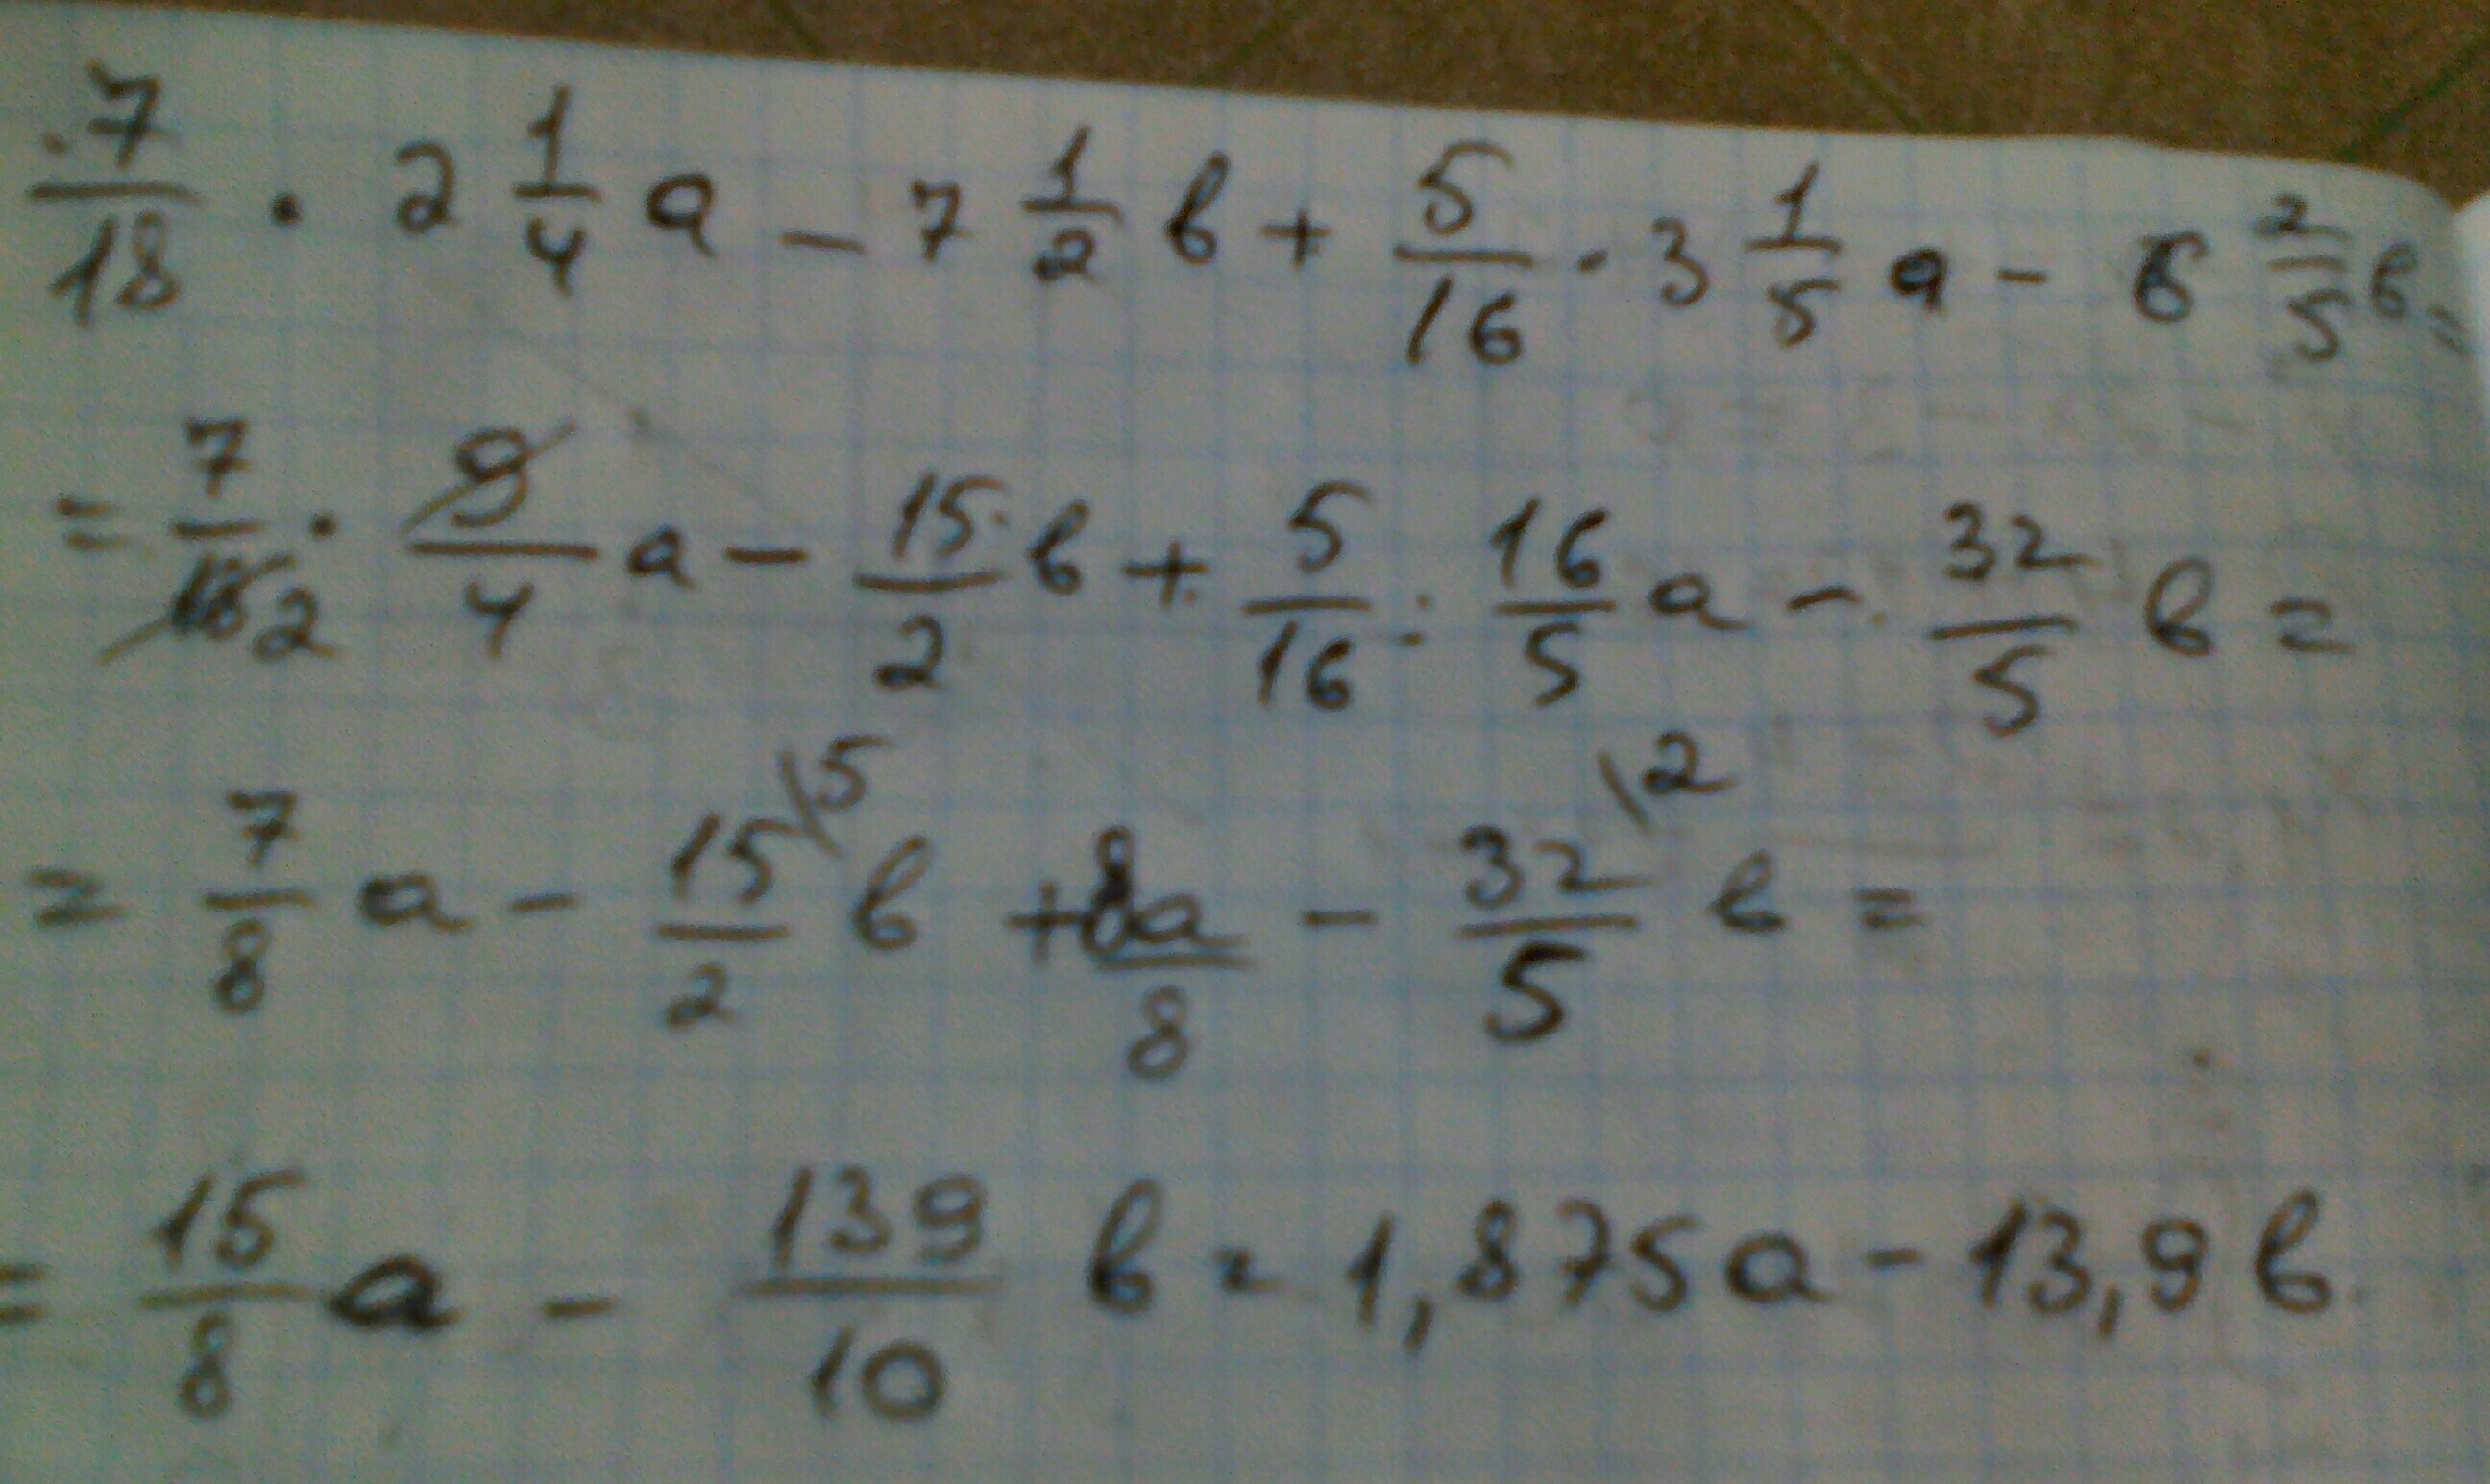 7/18 · 2 1/4 a - 7 1/2 в + 5/16 · 3 1/5 a - 6 2/5 в =
= 7/18 2 · 9/4 a - 15/2 в + 5/16 · 16/5 a - 32/5 в =
= 7/8 a - 15/2 \5 в + 8a/8 - 32/5 \2 в =
= 15/8 a - 139/10 в = 1,875a - 13,9в